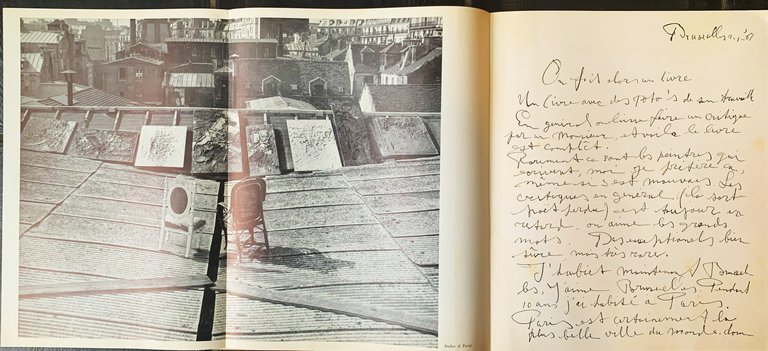 Atelier de Paris
Bruxelles
On fait alors un livre
Un livre avec des foto's de son travail
En général on laisse faire un critique
par un Monsieur, et voila le livre
est complèt.
Rarement ce sont les peintres qui
écrivent, moi je préfère ça,
même si s'est mauvais. Les
critiques en général (ils sont
trop perdu) c'est toujour en
retard, on aime les grands
mots. Des exceptionels bien
sûre mais très rare.
J'habite maintenant Bruxel
les, J'aime Bruxelles. Pendant
10 ans j'ai habité a Paris.
Paris est certainement la
plus belle ville du monde, dom